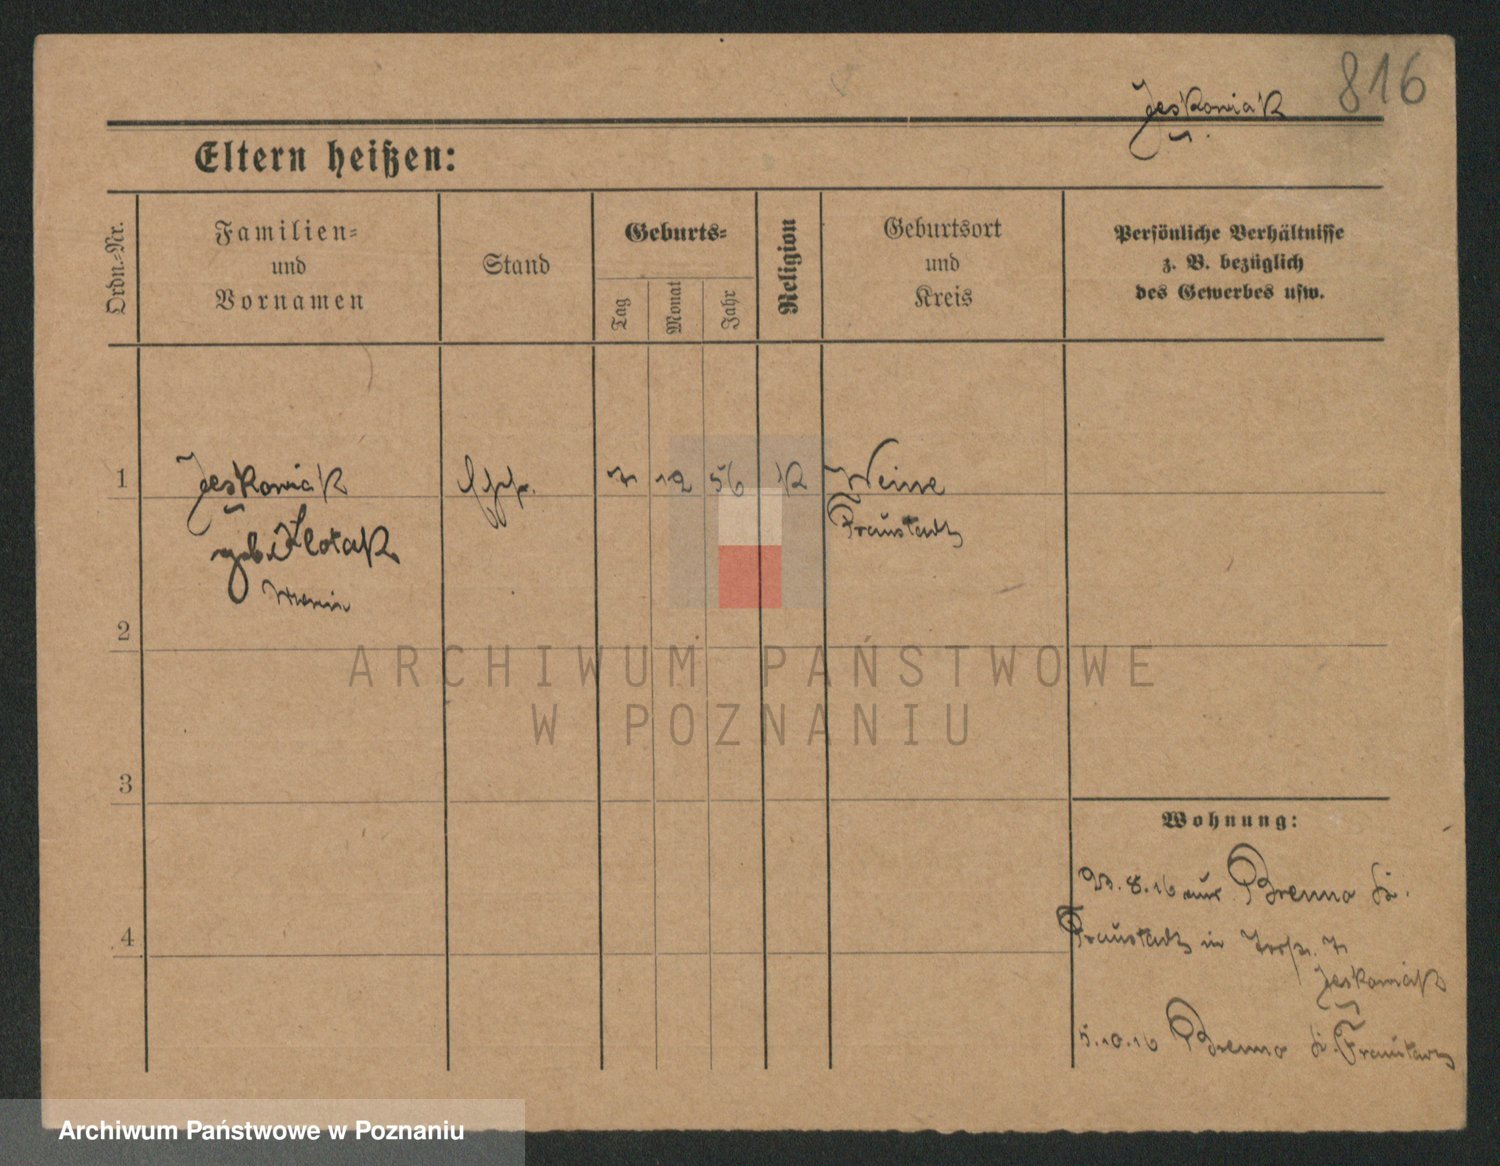 816
Jeskowiak
Eltern heißen:
Ordn.-Nr.
Familien-
und
Vornamen
Stand
Geburts-
Tag
Monat
Jahr
Religion
Geburtsort
und
Kreis
Persönliche Verhältnisse
z. B. bezüglich
des Gewerbes usw.
1
Jeskowiak
7 12 56 K Weine
geb. Klotak
Fraustadt
2
ARCHIWUM PAŃSTWOWE
W POZNANIU
3
Wohnung:
23.8.16 aus Brenno Kr.
4
Fraustadt in 7
Jeskowiak
5.10.16 Brenno Kr. Fraustadt
Archiwum Państwowe w Poznaniu